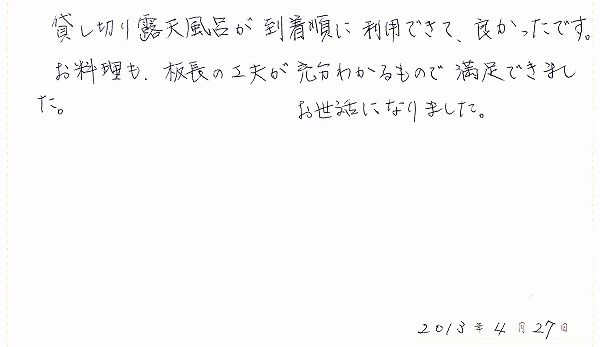 貸し切り露天風呂が到着順に利用できて、良かったです。
お料理も、板長の工夫が充分わかるもので満足できまし
た。 お世話になりました。
2013年4月27日